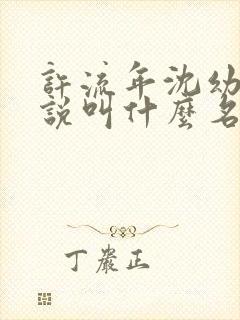 許流年沈幼
說叫什麼名
丁嚴正